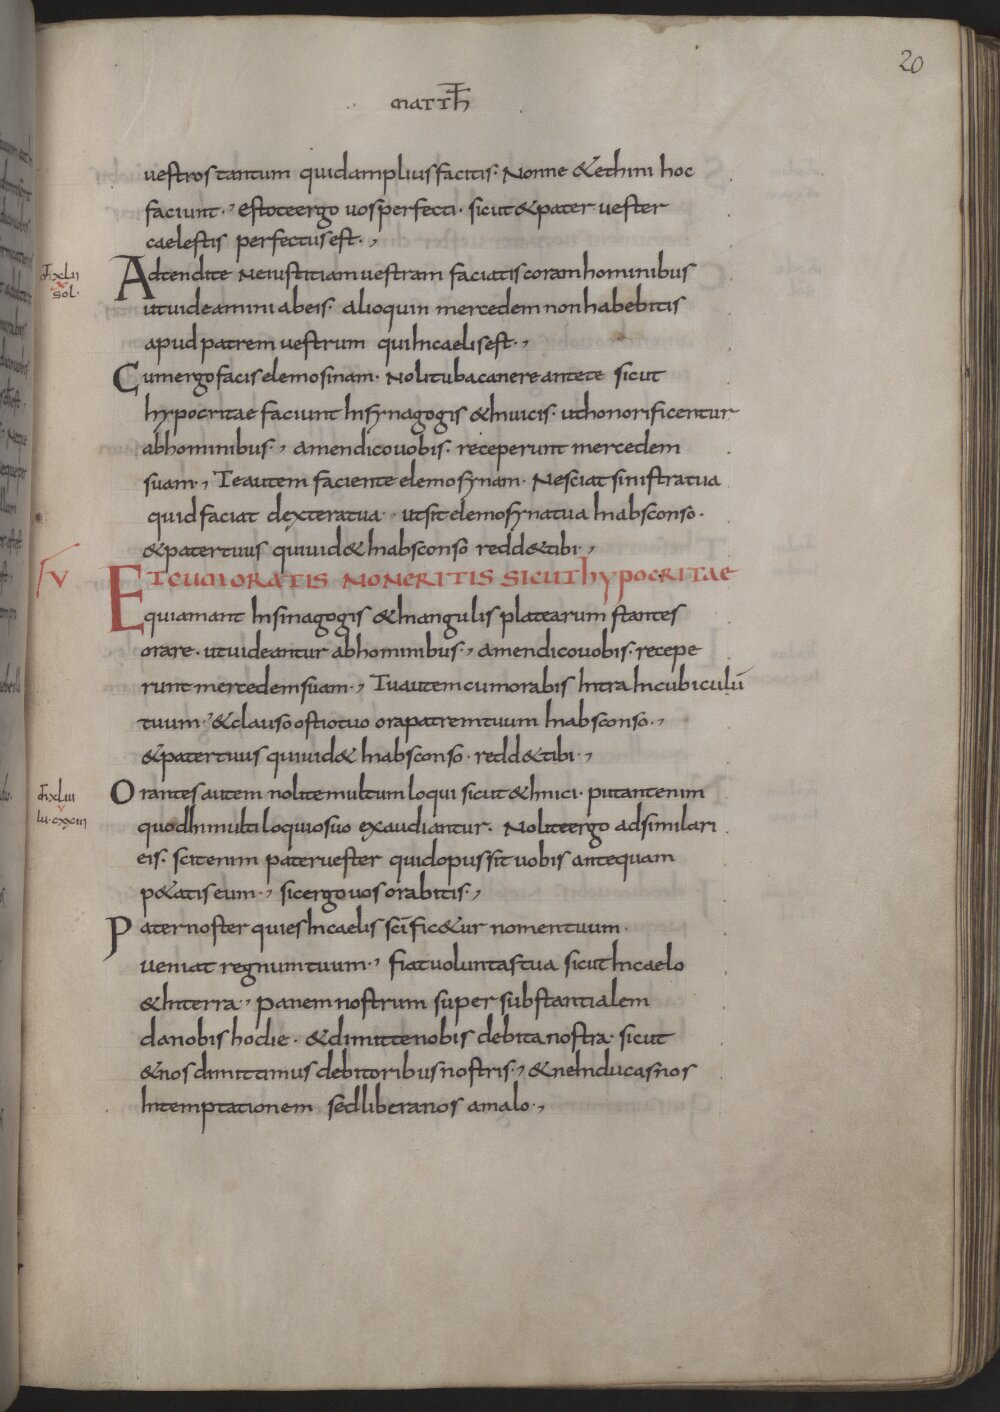 20
MATTH̅
uestros tantum quid amplius facitis. Nonne & ethini hoc
faciunt. Estote ergo uos perfecti. sicut & pater uester
caelestis perfectus est.,
Adtendite Ne iustitiam uestram faciatis coram hominibus
ut uideamini ab eis. alioquin mercedem non habebitis
apud patrem uestrum qui In caelis est.,
Cum ergo facis elemosinam. Noli tuba canere ante te sicut
hypocritae faciunt In synagogis & In uicis. ut honorificentur
ab hominibus., amen dico uobis. receperunt mercedem
suam., Te autem faciente elemosynam. Nesciat sinistra tua
quid faciat dextera tua. ut sit elemosyna tua In absconso.
& pater tuus qui uid& In absconso redd& tibi.,
V
ET CUM ORATIS NON ERITIS SICUT hypOCRITAE
qui amant In sinagogis & In angulis platearum stantes
orare. ut uideantur ab hominibus., amen dico uobis. recepe
runt mercedem suam., Tu autem cum orabis Intra In cubiculū
tuum., & clauso ostio tuo ora patrem tuum In absconso.,
& pater tuus qui uid& In absconso. redd& tibi.,
Orantes autem nolite multum loqui sicut & hnici. putant enim
quod In multiloquio suo exaudiantur. Nolite ergo adsimilari
eis. scit enim pater uester quid opus sit uobis antequam
p&atis eum., sic ergo uos orabitis.,
Pater noster qui es In caelis sc̅ific&ur nomen tuum.
ueniat regnum tuum., fiat uoluntas tua sicut In caelo
& In terra., panem nostrum super substantialem
da nobis hodie. & dimitte nobis debita nostra. sicut
& nos dimittimus debitoribus nostris., & ne Inducas nos
In temptationem sed libera nos a malo.,